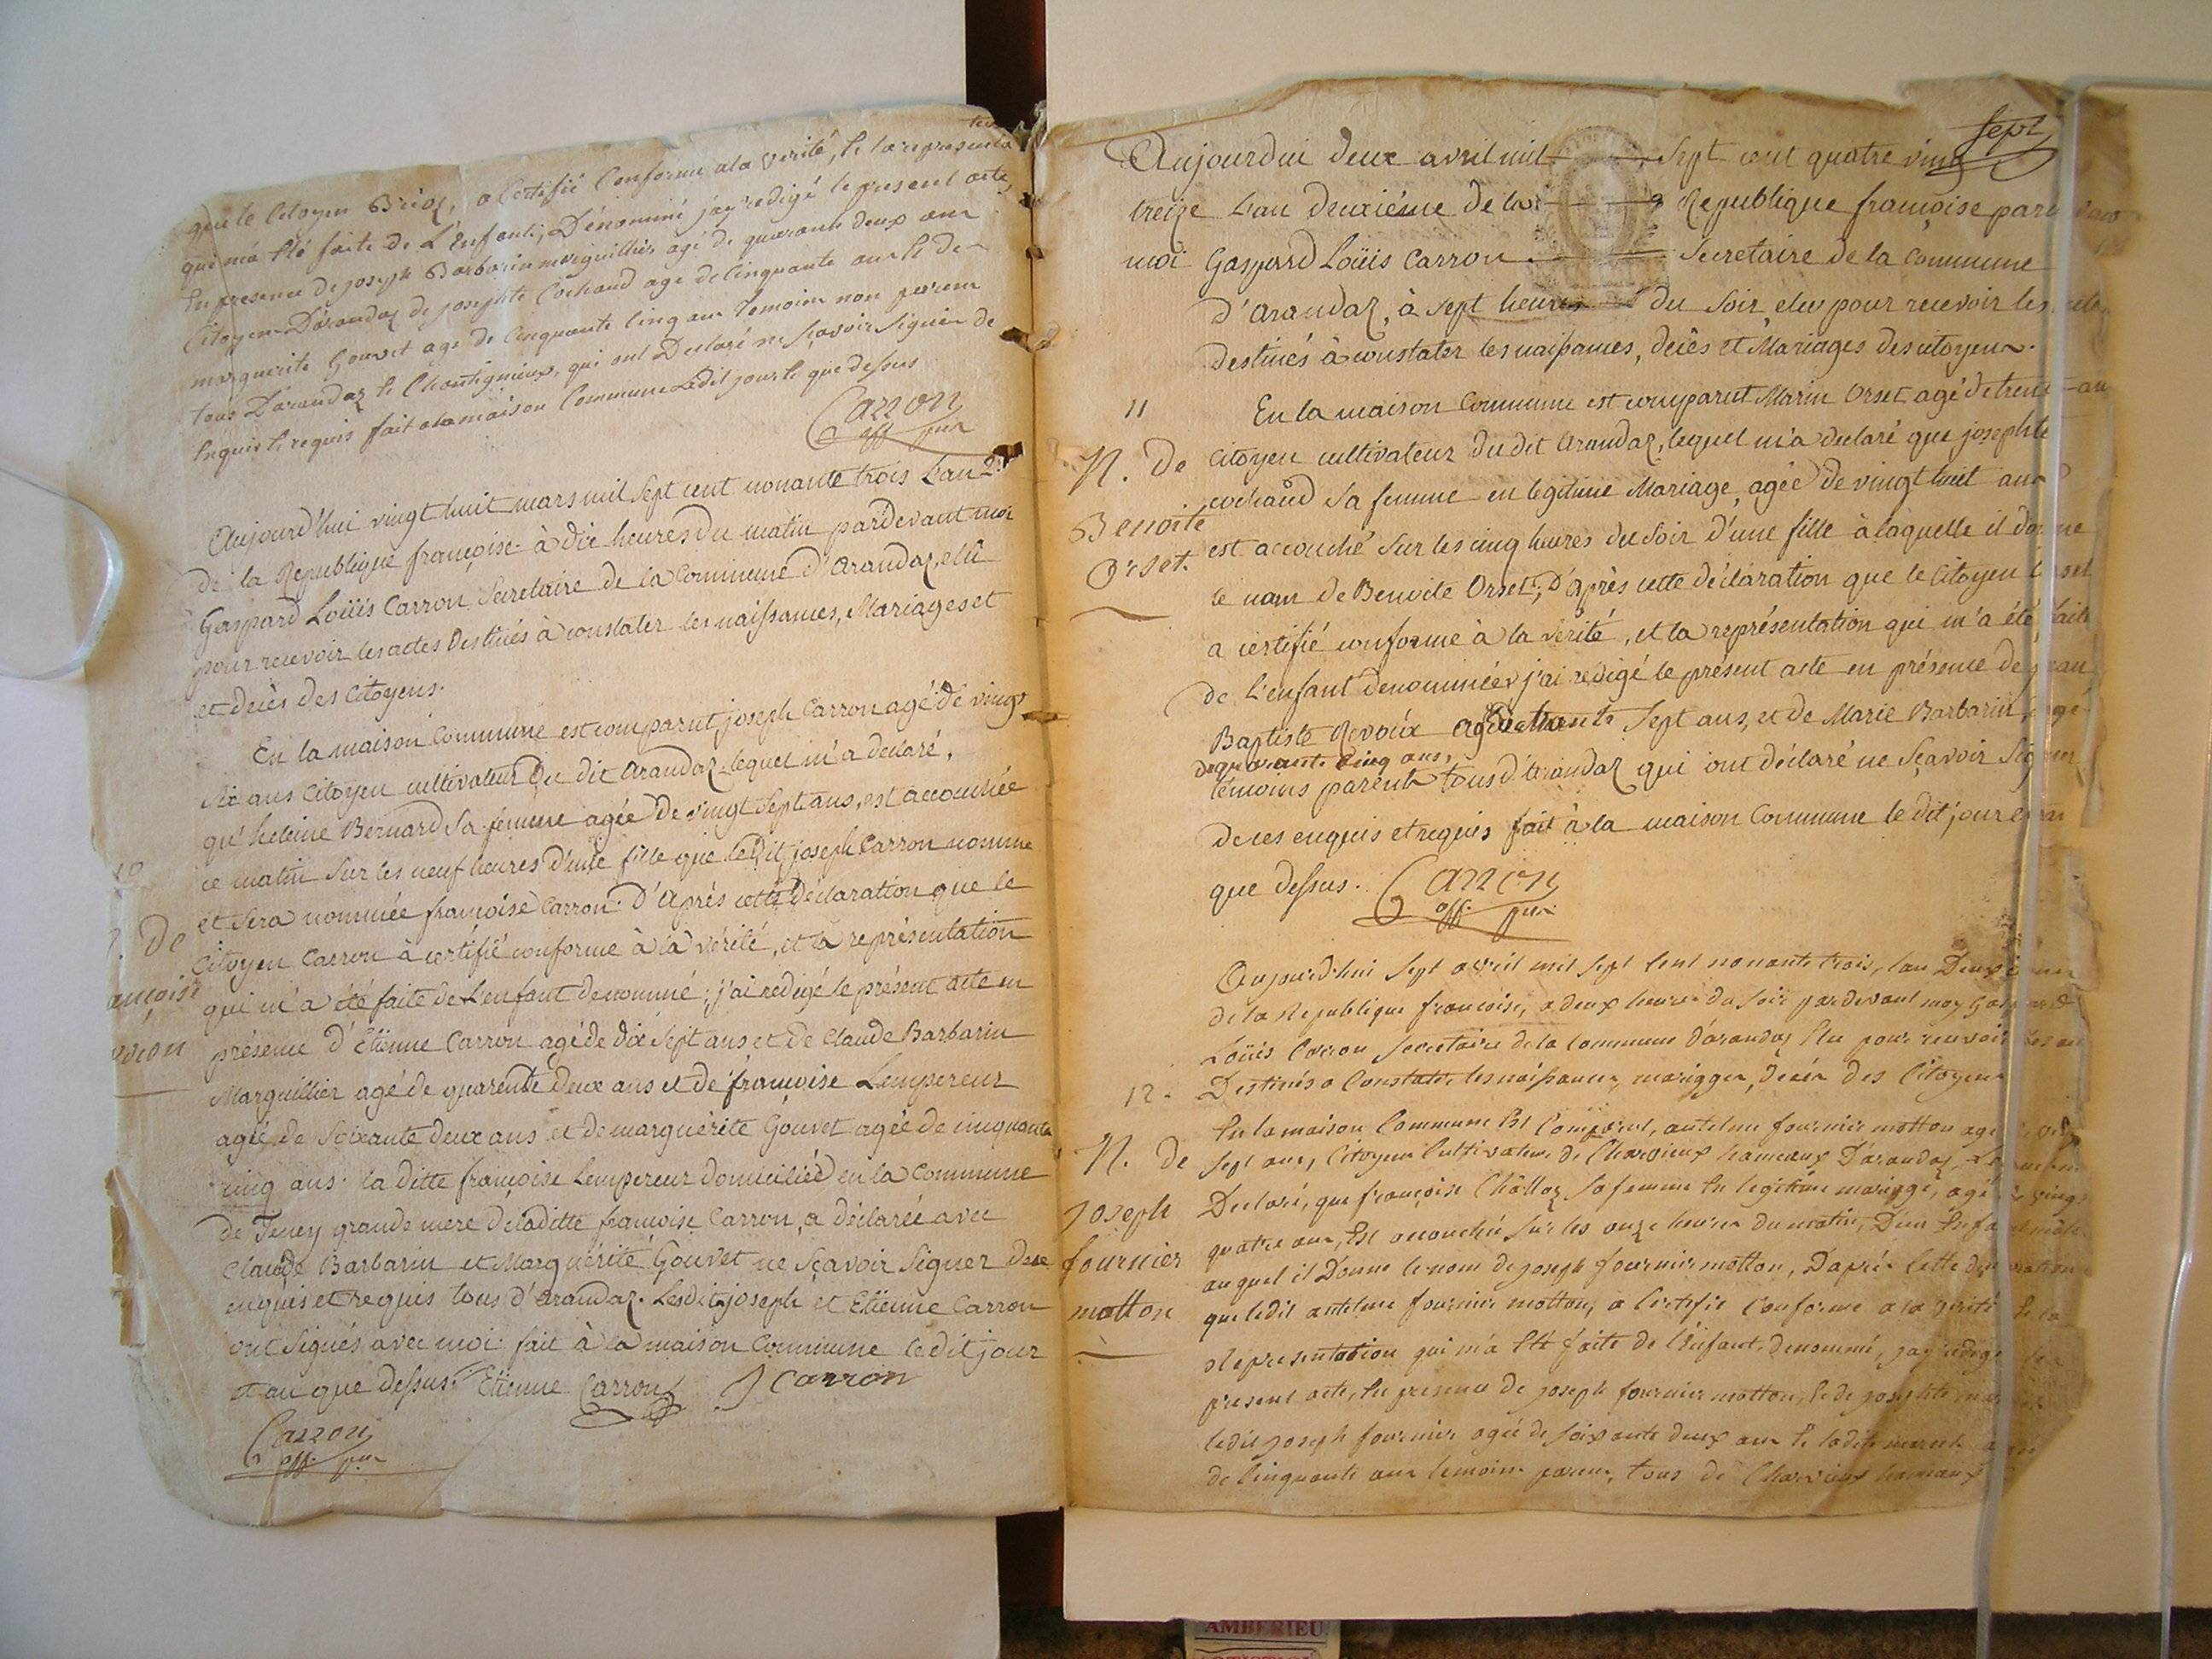 que le Citoyen Brioz, a Certifié Conforme a la verité, Et la representa
tion
qui m'a Eté faite de L'Enfant, Dénommé j'ay redigé le present acte
En presence de joseph Barbarin marguillier agé de quarante deux ans
Citoyen D'arandaz de josephte Cochaud age de Cinquante ans Et de
marguerite Gouvet age de Cinquante Cinq ans temoins non parens
tous D'arandaz Et Chantignieux, qui ont Declaré ne sçavoir signer de
Enquis Et requis fait a la maison Commune Ledit jour Et que dessus
Carron
off. pub.
Aujourd'hui vingt huit mars mil sept cent nonante trois L'an 2e
de la Republique françoise à dix heures du matin pardevant moi
Gaspard Loüis Carron Secretaire de la Commune d'Arandaz, elû
pour recevoir les actes destinés à constater les naissances, Mariages et
et decès des Citoyens.
En la maison Commune est comparut joseph Carron agé de vingt
six ans Citoyen cultivateur du dit Arandaz lequel m'a declaré,
qu'heleine Bernard sa femme agée de vingt sept ans, est accouchée
ce matin sur les neuf heures d'une fille que le dit joseph Carron nomme
et sera nommée françoise Carron. D'Après cette déclaration que le
Citoyen Carron à certifié conforme à la vérité, et la représentation
qui m'a été faite de L'enfant denommé; j'ai redigé le présent acte en
présence d'Etienne Carron agé de dix sept ans et de Claude Barbarin
Marguillier agé de quarente deux ans et de françoise Lempereur
agée de soixante deux ans et de marguérite Gouvet agée de cinquante
cinq ans. la ditte françoise Lempereur domiciliée en la Commune
de Teney grande mere de laditte françoise Carron, a déclarée avec
Claude Barbarin et Marguérite Gouvet ne sçavoir signer de ce
enquis et requis tous d'Arandaz. Lesdits joseph et Etienne Carron
ont signés avec moi. fait à la maison Commune le dit jour
et an que dessus. Etienne Carron J Carron
Carron
off. pub.
10
. De
ançoise
rron
sept
Aujourdui deux avril mil sept cent quatre vingt
treize L'an deuxième de la Republique françoise par devant
moi Gaspard Loüis Carron Secretaire de la Commune
d'Arandaz, à sept heures du soir, elu pour recevoir les actes
destinés à constater les naissances, décès et Mariages des citoyens.
11
En la maison Commune est comparut Marin Orset agé de trente an
N. De
Benoite
Orset.
citoyen cultivateur du dit Arandaz, lequel m'a declaré que josephte
cochaud sa femme en legitime Mariage, agée de vingt huit ans
est accouché sur les cinq heures du soir d'une fille à laquelle il donne
le nom de Benoite Orset; D'après cette déclaration que le Citoyen Orset
a certifié conforme à la vérité, et la représentation qui m'a été faite
de L'enfant denommée j'ai redigé le présent acte en présence de jean
Baptiste Revoux agé de trente sept ans, et de Marie Barbarin, agé
de quarante Cinq ans,
témoins parents tous d'Arandaz qui ont déclaré ne sçavoir signer
de ces enquis et requis fait à la maison Commune le dit jour et an
que dessus. Carron
off. pub.
Aujourd'hui sept avril mil sept Cent nonante trois, l'an Deuxième
de la Republique françoise, a deux heures du soir pardevant moy Gaspard
Loüis Carron Secretaire de la Commune D'arandaz Elu pour recevoir les
12. Destinés a Constater les naissances, mariages, décès des Citoyens
N. de
joseph
fournier
motton
En la maison Commune Est Comparut, antelme fournier motton agé
sept ans, Citoyen Cultivateur de Charvieux hameaux D'arandaz
Declaré, que françoise Challoz sa femme En legitime mariage, agé vingt
quatre ans, Est accouchée sur les onze heures du matin, D'un Enfant
auquel il Donne le nom de joseph fournier motton, D'apré Cette declaration
que ledit antelme fournier motton, a Certifie Conforme a la verité Et la
Representation qui m'a Eté faite de l'Enfant, denommé, j'ay redigé le
present acte, En presence de joseph fournier motton, Et de josephte
ledit joseph fournier agé de soixante deux ans Et ladite
de Cinquante ans temoins parens, tous de Charvieux hameaux
AMBERIEU